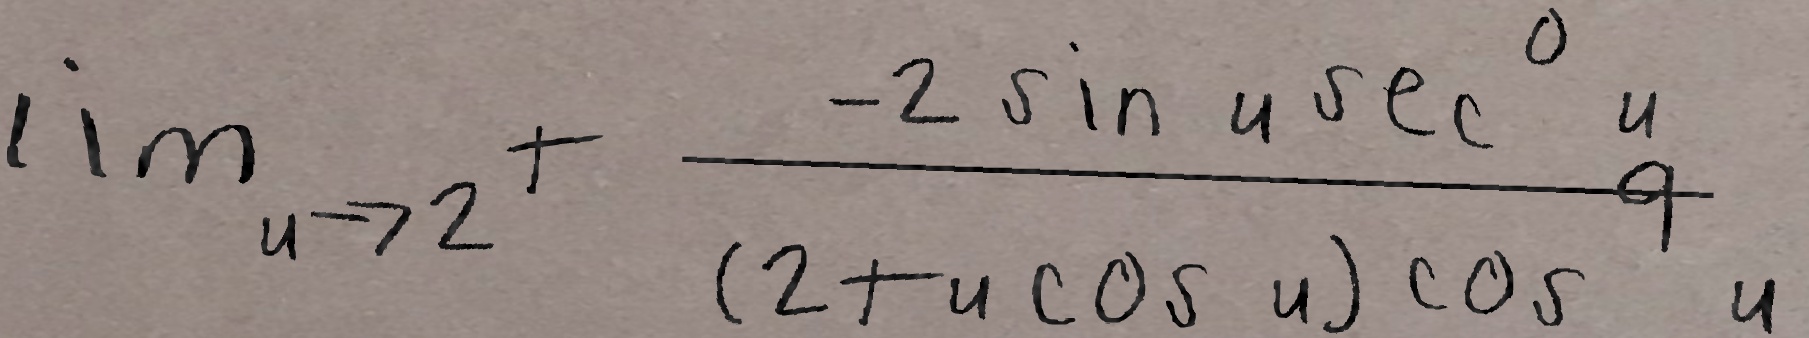 \lim_{u \to 2^+} \frac{-2 \sin u \sec^0 u}{(2 + u \cos u) \cos^9 u}